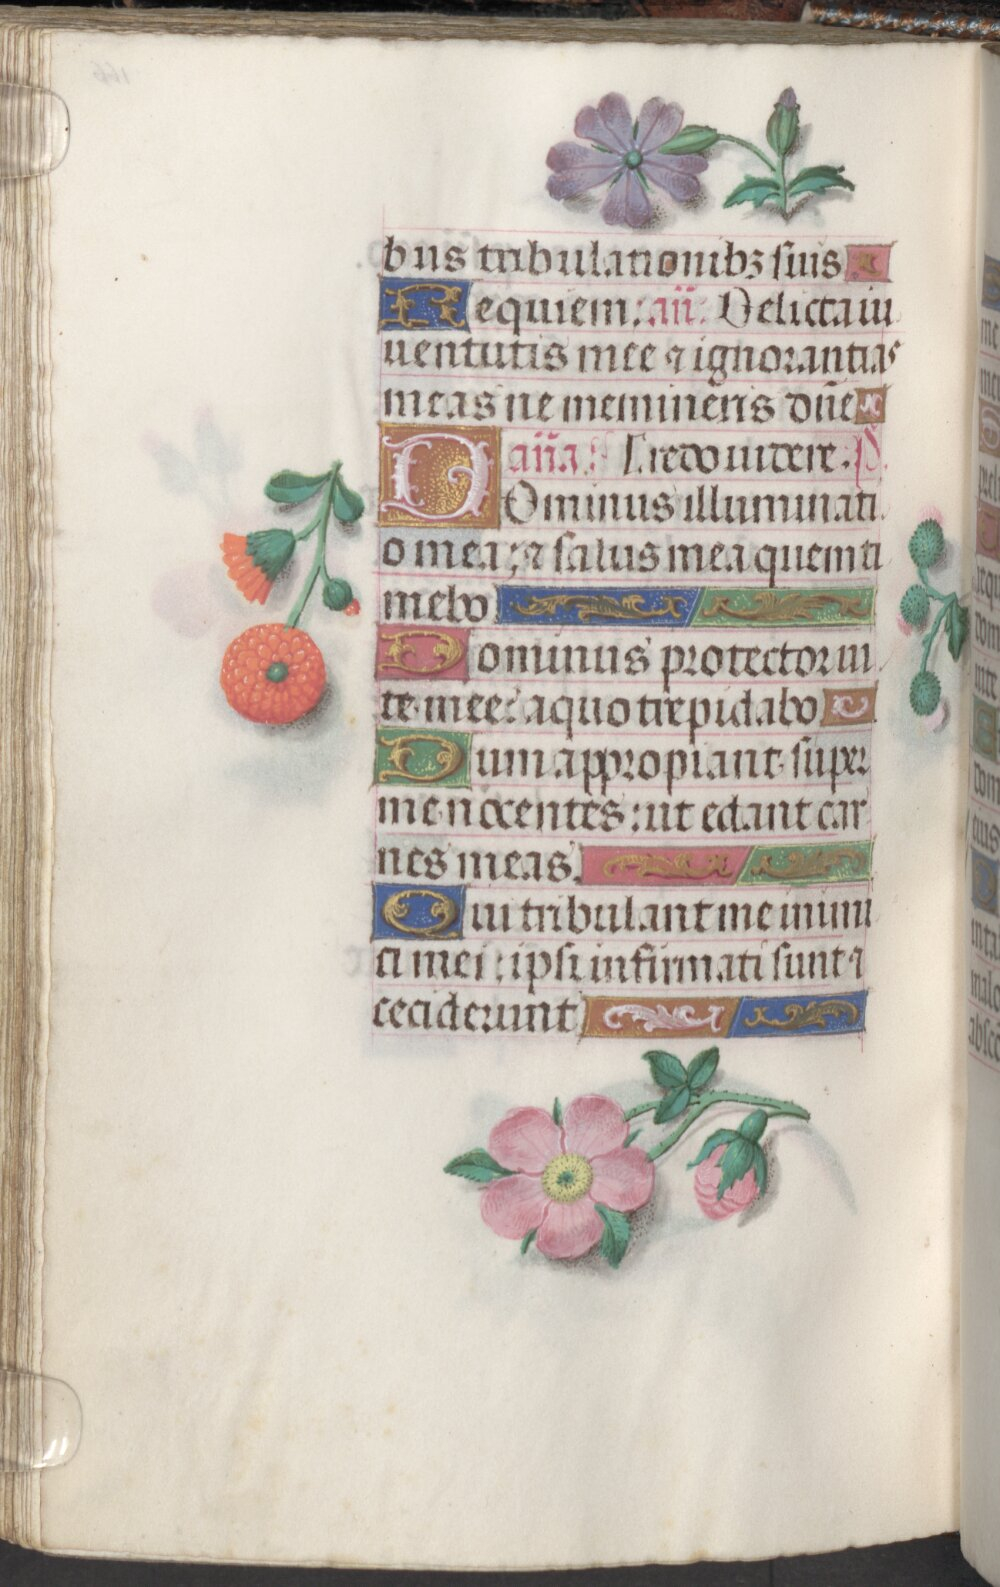 bus tribulationibꝫ suis
Requiem. añ. Delicta iu
uentutis mee ⁊ ignorantias
meas ne memineris dñe
aña. Credo uidere. P̄.
Dominus illuminati
o mea: ⁊ salus mea quem ti
mebo
Dominus protector ui
te mee: a quo trepidabo
Dum appropiant super
me nocentes: ut edant car
nes meas.
Qui tribulant me inimi
ci mei: ipsi infirmati sunt ⁊
ceciderunt